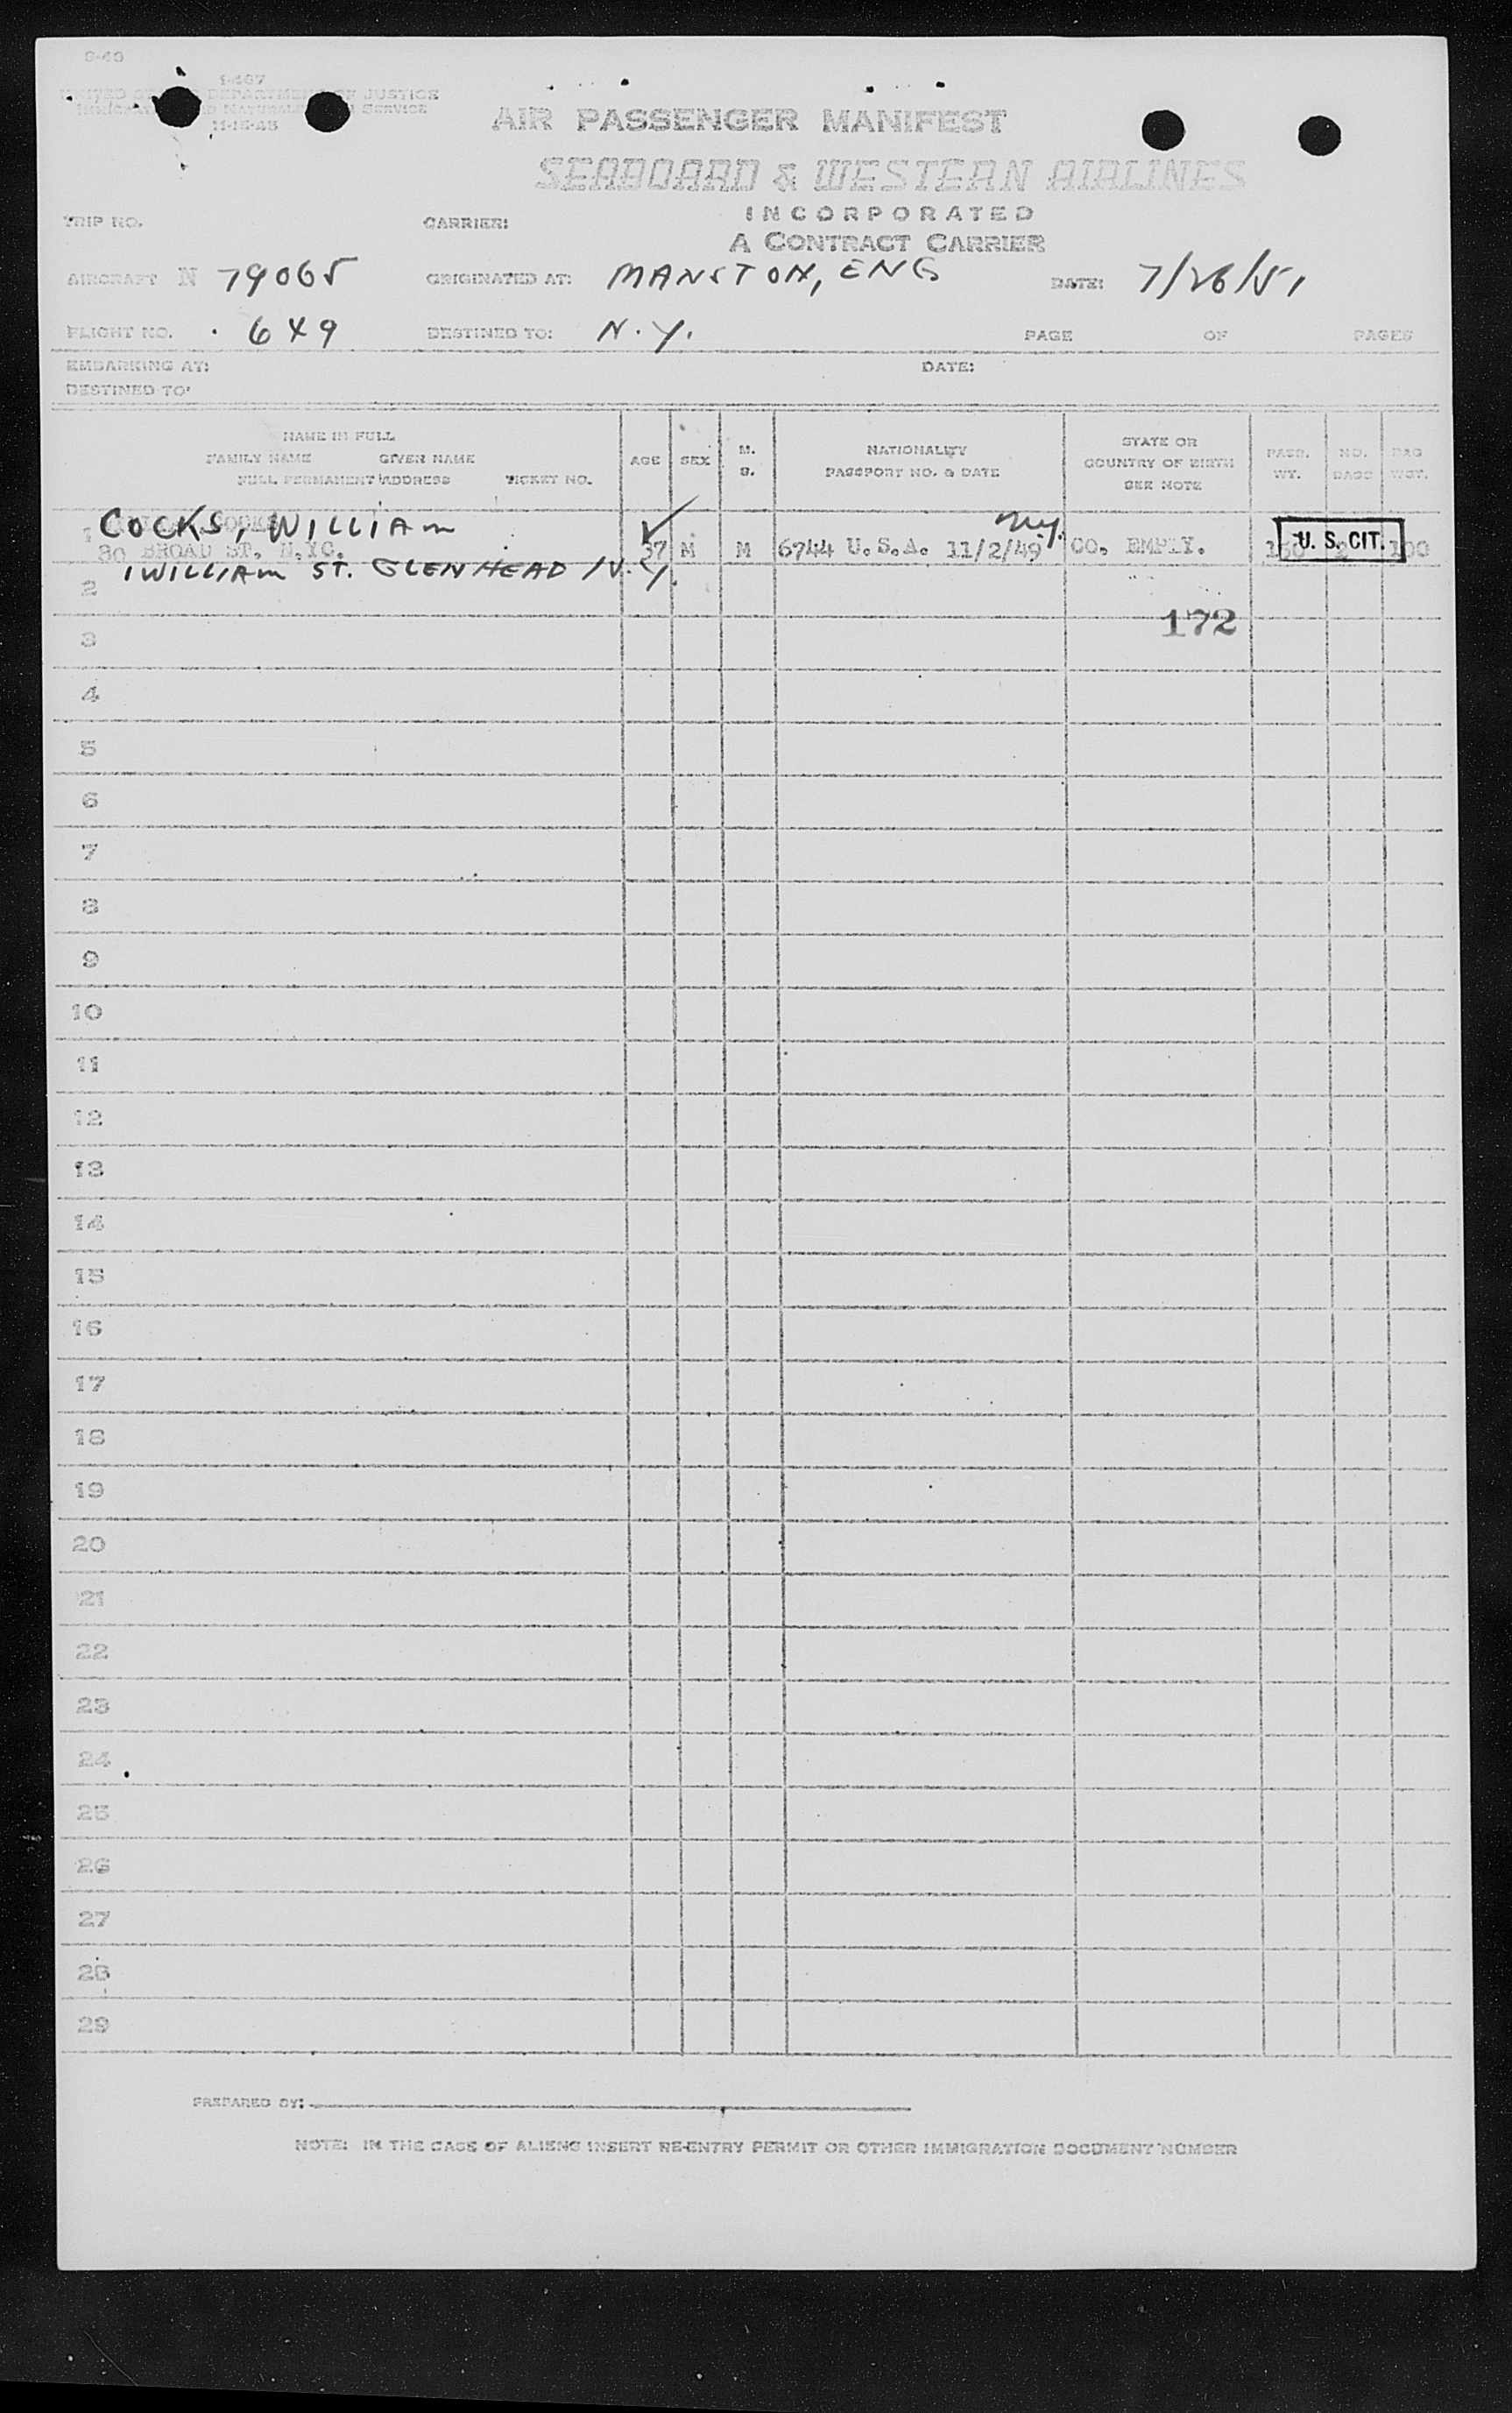 S-49
I-467
UNITED DEPARTMENT OF JUSTICE
SERVICE
11-15-48
AIR PASSENGER MANIFEST
SEABOARD & WESTERN AIRLINES
INCORPORATED
A CONTRACT CARRIER
TRIP NO. CARRIER:
AIRCRAFT N 79065 ORIGINATED AT: MANSTON, ENG DATE: 7/26/51
FLIGHT NO. 649 DESTINED TO: N.Y. PAGE OF PAGES
EMBARKING AT: DATE:
DESTINED TO
NAME IN FULL
FAMILY NAME GIVEN NAME
FULL PERMANENT ADDRESS TICKET NO.
AGE SEX M. S.
NATIONALITY
PASSPORT NO. & DATE
STATE OR
COUNTRY OF BIRTH
SEE NOTE
PASS. WT. NO. BAGS BAG WGT.
1 COCKS, WILLIAM
80 BROAD ST, N.YC. 37 M M 6744 U.S.A. 11/2/49 N.Y. CO. EMPLY. U. S. CIT.
1 WILLIAM ST. GLENHEAD N.Y.
2
172
3
4
5
6
7
8
9
10
11
12
13
14
15
16
17
18
19
20
21
22
23
24
25
26
27
28
29
PREPARED BY:
NOTE: IN THE CASE OF ALIENS INSERT RE-ENTRY PERMIT OR OTHER IMMIGRATION DOCUMENT NUMBER